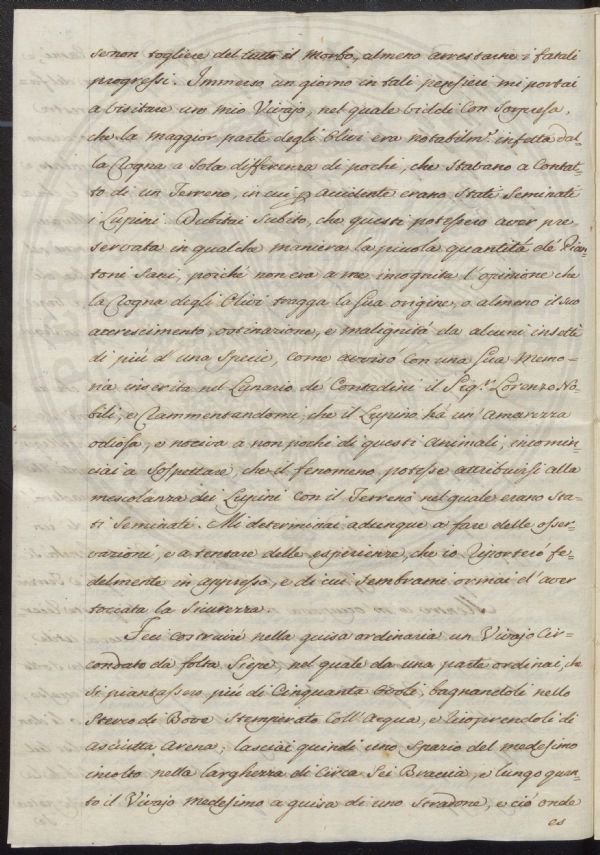 se non togliere del tutto il Morbo, almeno arrestarne i fatali
progressi. Immerso un giorno in tali pensieri mi portai
a visitare uno mio Vivajo, nel quale viddi con sorpresa,
che la maggior parte degli Olivi era notabilm.e infetta dal-
la Rogna a sola differenza di pochi, che stavano a Contat-
to di un Terreno, in cui p accidente erano stati seminati
i Lupini. Dubitai subito, che questi potessero aver pre-
servata in qualche maniera la piccola quantità de' Pian-
toni sani, poiché non era a me incognita l'opinione che
la Rogna degli Olivi tragga la sua origine, o almeno il suo
accrescimento, ostinazione, e malignità da alcuni insetti
di più d'una specie, come avvisò con una sua Memo-
ria inserita nel Lunario de Contadini il Sig.r Lorenzo No-
bili, e rammentandomi, che il Lupino hà un' amarezza
odiosa, e nociva a non pochi di questi animali, incomin-
ciai a sospettare, che il fenomeno potesse attribuirsi alla
mescolanza dei Lupini con il Terreno nel quale erano sta-
ti seminati. Mi determinai adunque a fare delle osser-
vazioni, e a tentare delle esperienze, che io riporterò fe-
delmente in appresso, e di cui sembrami ormai d'aver
toccata la sicurezza.
Feci costruire nella guisa ordinaria un Vivajo cir-
condato da folta siepe, nel quale da una parte ordinai, che
si piantassero più di Cinquanta ovoli, bagnandoli nello
sterco di Bove stemperato coll'acqua, e ricoprendoli di
asciutta arena; lasciai quindi uno spazio del medesimo
incolto nella larghezza di circa sei Braccia, e lungo quan-
to il Vivajo medesimo a guisa di uno stradone, e ciò onde
es